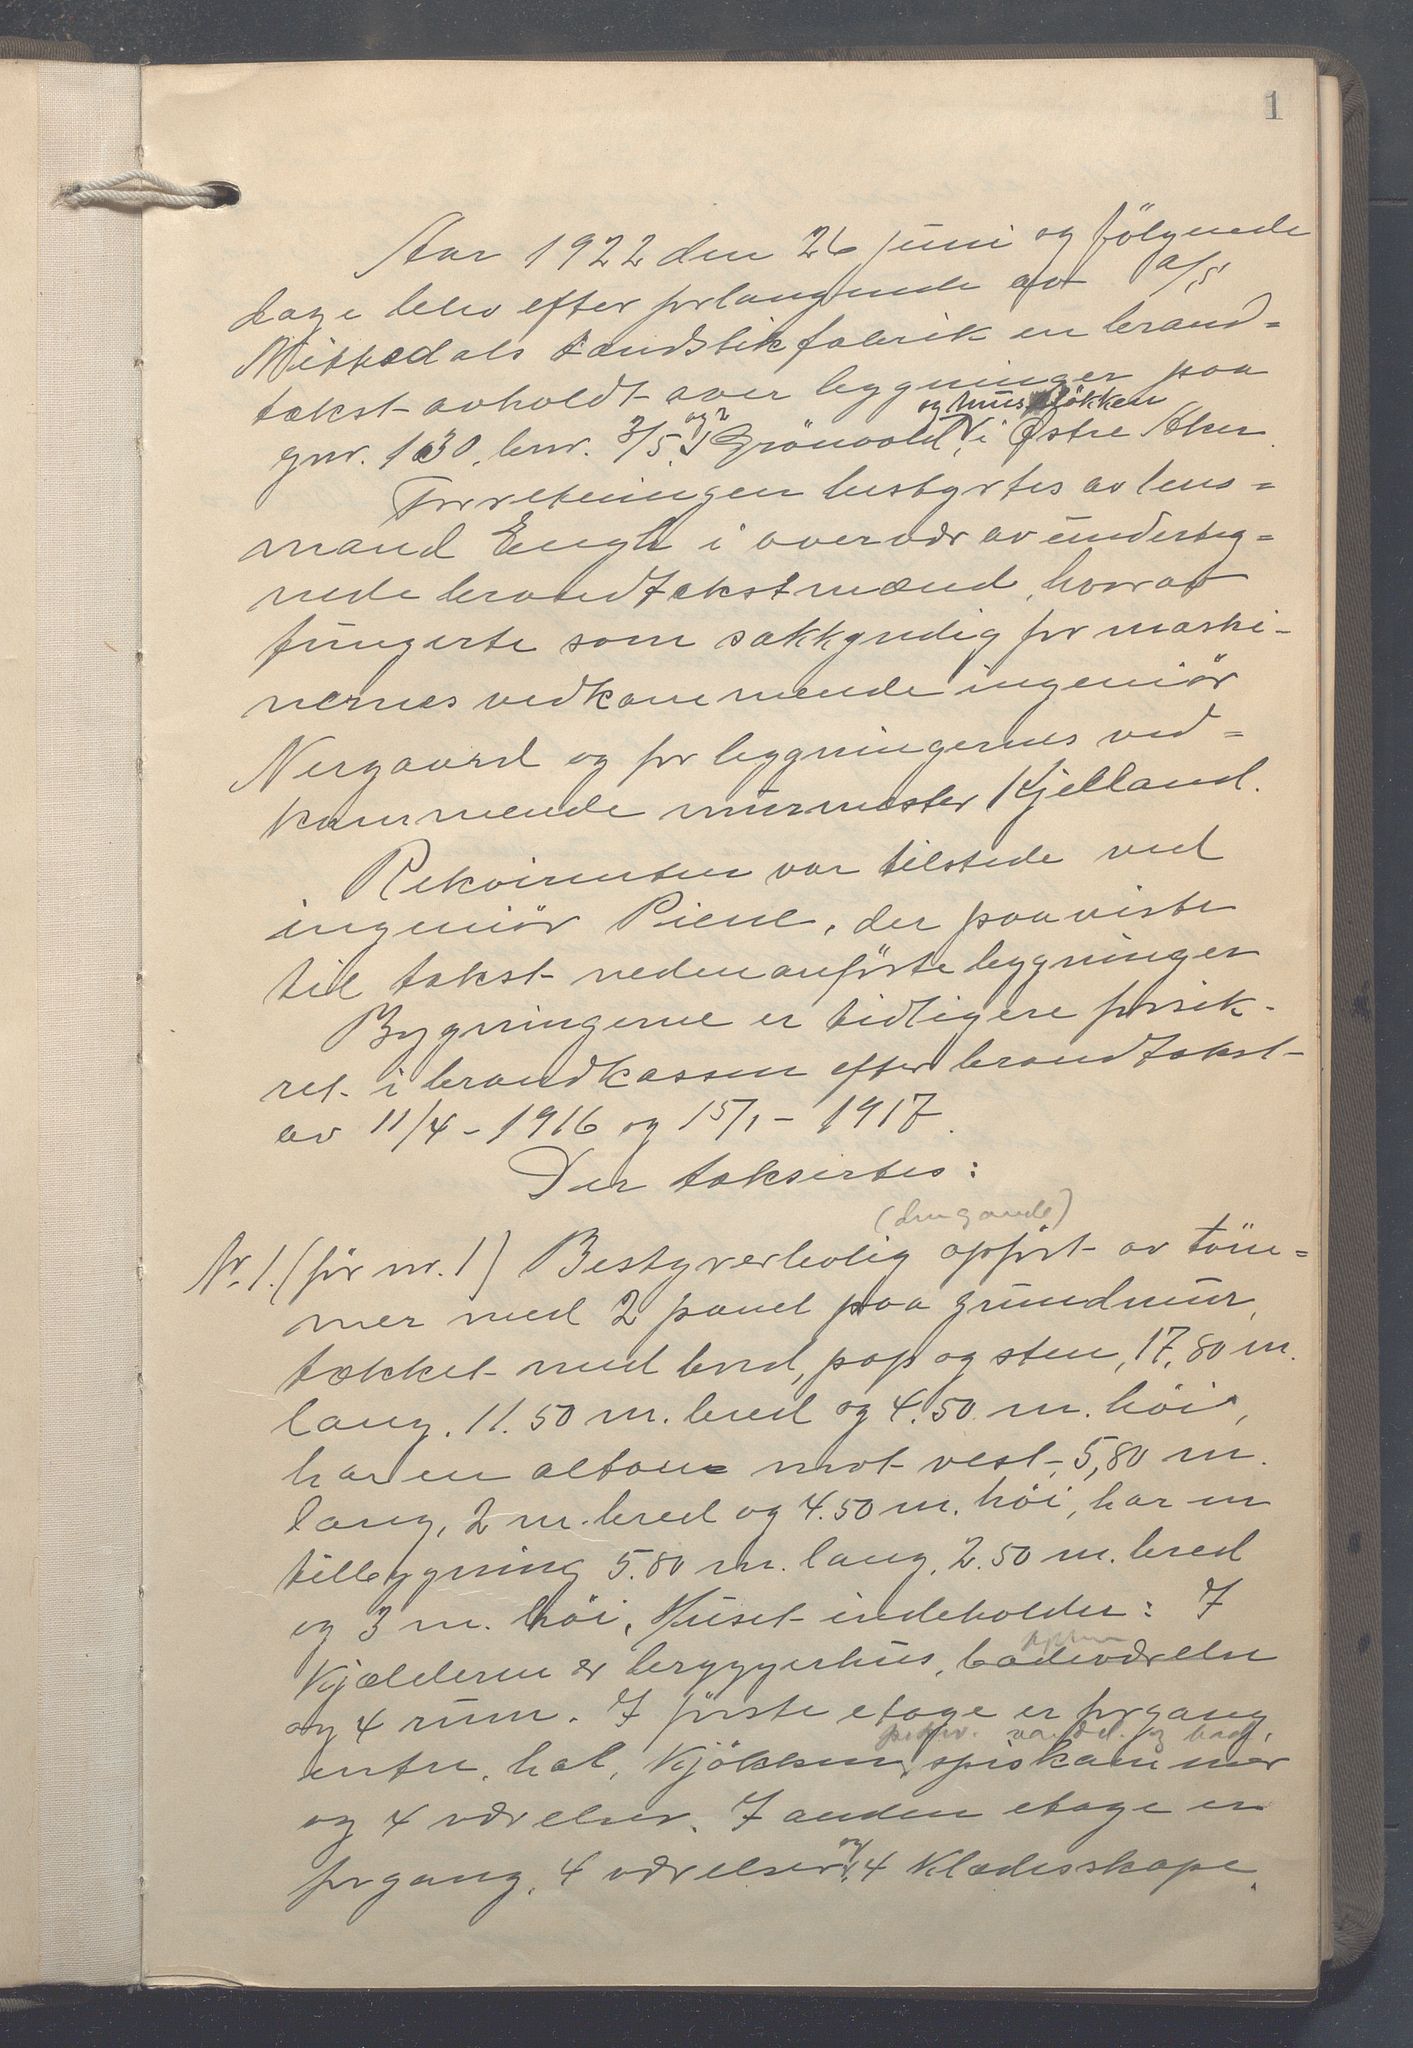 1
Aar 1922 den 26 juni og følgende
dage blev efter forlangende av A/S
Nitedals tændstikfabrik en brand=
takst avholdt over bygninger paa
gnr. 130, bnr. 3/5, og 2 Grönvold, og husløkken i Østre Aker.
Forretningen bestyrtes av lens=
mand Engh i overvær av underteg=
nede brandtakstmænd, hvorav
fungerte som sakkyndig for maski-
nernes vedkommende ingeniör
Nergaard og for bygningernes ved=
kommende murmester Kjelland.
Rekvirenten var tilstede ved
ingeniör Piene, der paaviste
til takst nedenanförte bygninger
Bygningerne er tidligere forsik-
ret i brandkassen efter brandtakst
av 11/4 - 1916 og 15/1 - 1917.
Der taksertes:
Nr. 1. (för nr. 1) Bestyrerbolig opfört av töm=
mer med 2 panel paa grundmur,
tækket med bord, pap og sten, 17,80 m.
lang, 11.50 m. bred og 4.50 m. höi,
har en altan mot vest, 5,80 m.
lang, 2 m. bred og 4.50 m. höi, har en
tilbygning 5.80 m. lang, 2.50 m. bred
og 3 m. höi. Huset indeholder: I
Kjælderen er bryggerhus, badeværelse
og 4 rum. I förste etage er forgang,
entre, hal, Kjökken, spiskammer
og 4 værelser. I anden etage er
forgang, 4 værelser og 4 Klædesskape.